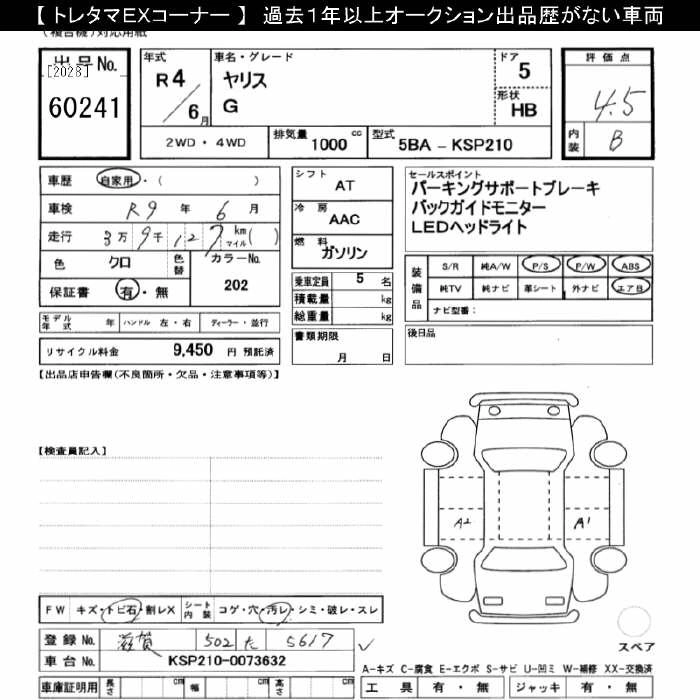 【 トレタマEXコーナー 】 過去1年以上オークション出品歴がない車両
(複合機)対応用紙
出品No.
[2028]
60241
年式
R4
/6月
車名・グレード
ヤリス
G
ドア
5
形状
HB
2WD・4WD
排気量 1000 cc
型式 5BA - KSP210
評価点
4.5
内装 B
車歴 自家用・( )
車検 R9 年 6 月
走行 3万9千127 km マイル( )
色 クロ 色替 カラーNo.
202
保証書 有・無
モデル年式 年 ハンドル 左・右 ディーラー・並行
リサイクル料金 9,450 円 預託済
シフト AT
冷房 AAC
燃料 ガソリン
乗車定員 5 名
積載量 kg
総重量 kg
書類期限
月 日
セールスポイント
パーキングサポートブレーキ
バックガイドモニター
LEDヘッドライト
装備品
S/R 純A/W P/S P/W ABS
純TV 純ナビ 革シート 外ナビ エアB
ナビ型番:
後日品
【出品店申告欄(不良箇所・欠品・注意事項等)】
【検査員記入】
A2 A1
FW キズ・トビ石・割レX シート内装 コゲ・穴・汚レ・シミ・破レ・スレ
登録No. 滋賀 502 た 5617
車台No. KSP210-0073632
車庫証明用 長さ cm 幅 cm 高さ cm
スペア
A-キズ C-腐食 E-エクボ S-サビ U-凹ミ W-補修 XX-交換済
工具 有・無 ジャッキ 有・無